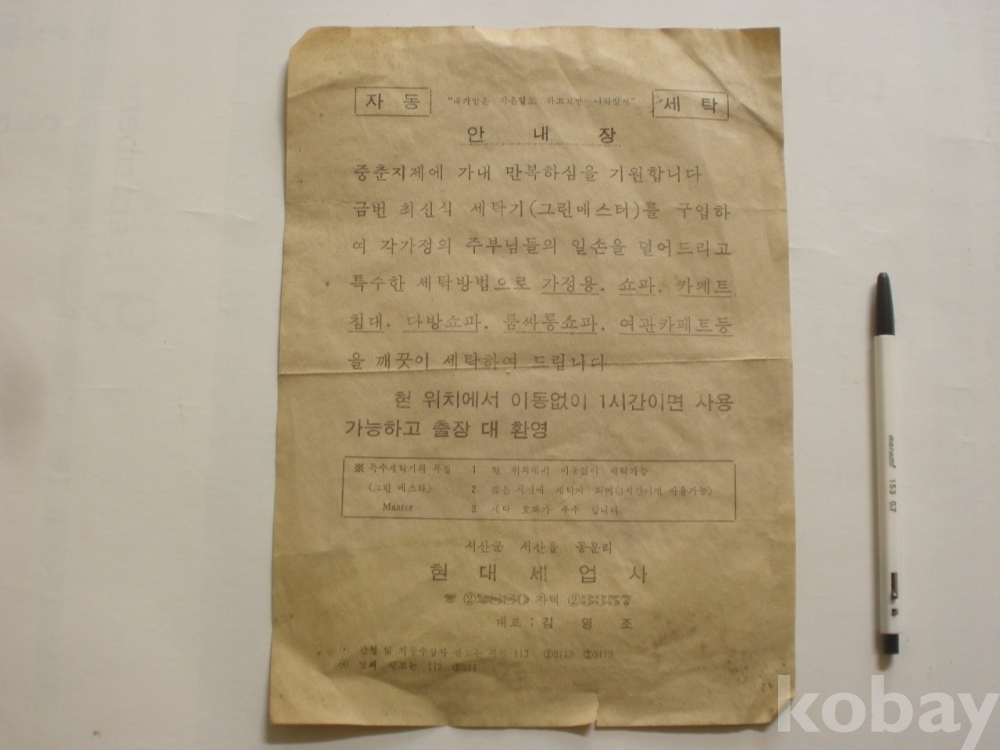 자 동 "내가맡은 작은일도 하고보면 나라발전" 세 탁
안 내 장
중춘지제에 가내 만복하심을 기원합니다
금번 최신식 세탁기(그린메스터)를 구입하
여 각가정의 주부님들의 일손을 덜어드리고
특수한 세탁방법으로 가정용. 쇼파. 카페트
침대. 다방쇼파. 룸싸롱쇼파. 여관카페트등
을 깨끗이 세탁하여 드립니다
현 위치에서 이동없이 1시간이면 사용
가능하고 출장 대 환영
※ 특수세탁기의 특징 1 현 위치에서 이동없이 세탁가능
(그린 메스타) 2. 짧은 시간에 세탁이 되며(1시간이면 사용가능)
Master 3 세탁 효과가 우수 합니다.
서산군 서산읍 동문리
현 대 세 업 사
☎ ②2880 자택 ②3357
대표 : 김 영 조
• 간첩 및 거동수상자 신고는 전화 113 ②3113
• 범죄 신고는 112
monami 153 0.7
kobay